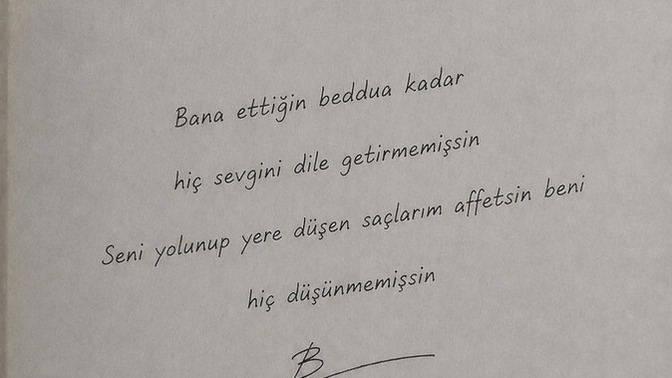 Bana ettiğin beddua kadar
hiç sevgini dile getirmemişsin
Seni yolunup yere düşen saçlarım affetsin beni
hiç düşünmemişsin
B